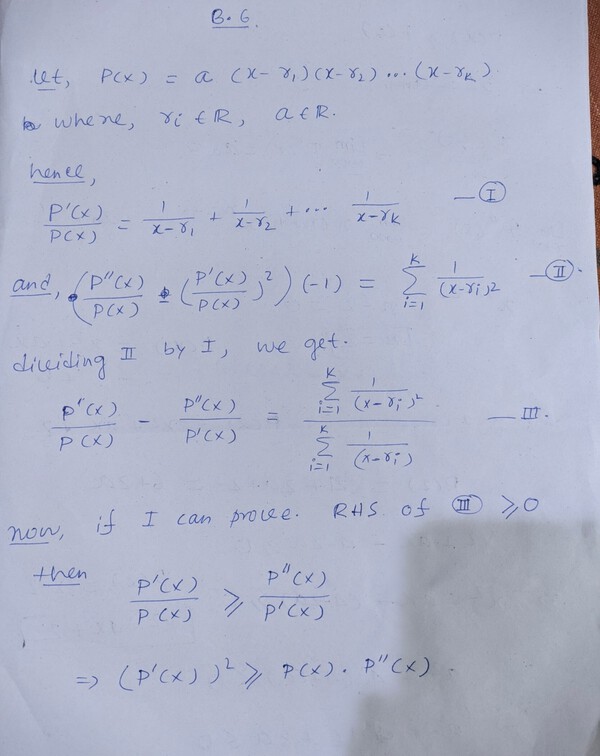 B.6.
Let, P(x) = a (x-r₁)(x-r₂)...(x-rₖ)
where, rᵢ ∈ ℝ, a ∈ ℝ.
hence,
P'(x)/P(x) = 1/(x-r₁) + 1/(x-r₂) + ... 1/(x-rₖ) — Ⓘ
and, (P''(x)/P(x) - (P'(x)/P(x))²)(-1) = ∑ᵢ₌₁ᴷ 1/(x-rᵢ)² — Ⓘ Ⓘ.
dividing II by I, we get.
P'(x)/P(x) - P''(x)/P'(x) = (∑ᵢ₌₁ᴷ 1/(x-rᵢ)²)/(∑ᵢ₌₁ᴷ 1/(x-rᵢ)) — III.
now, if I can prove. RHS of (III) ≥ 0
then
P'(x)/P(x) ≥ P''(x)/P'(x)
⇒ (P'(x))² ≥ P(x). P''(x).